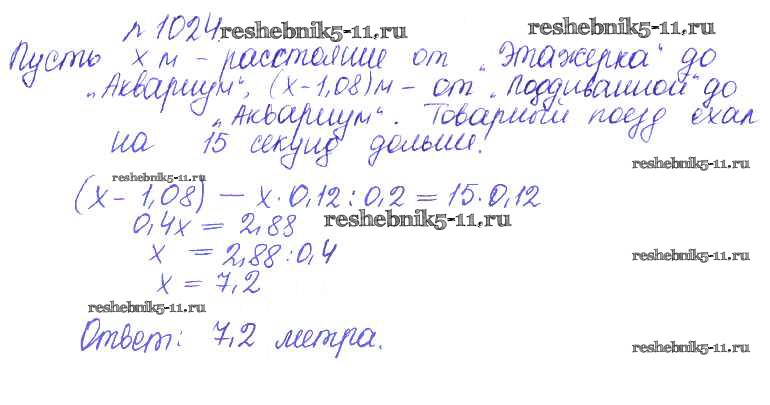 № 1024. reshebnik5-11.ru reshebnik5-11.ru
Пусть х м - расстояние от „Этажерка" до
„Аквариум", (х-1,08)м - от „Поддиванной" до
„Аквариум". Товарный поезд ехал
на 15 секунд дольше.
reshebnik5-11.ru
reshebnik5-11.ru
(х - 1,08) - х · 0,12 : 0,2 = 15 · 0,12
0,4х = 2,88 reshebnik5-11.ru
х = 2,88 : 0,4
reshebnik5-11.ru
х = 7,2
reshebnik5-11.ru
Ответ: 7,2 метра.
reshebnik5-11.ru